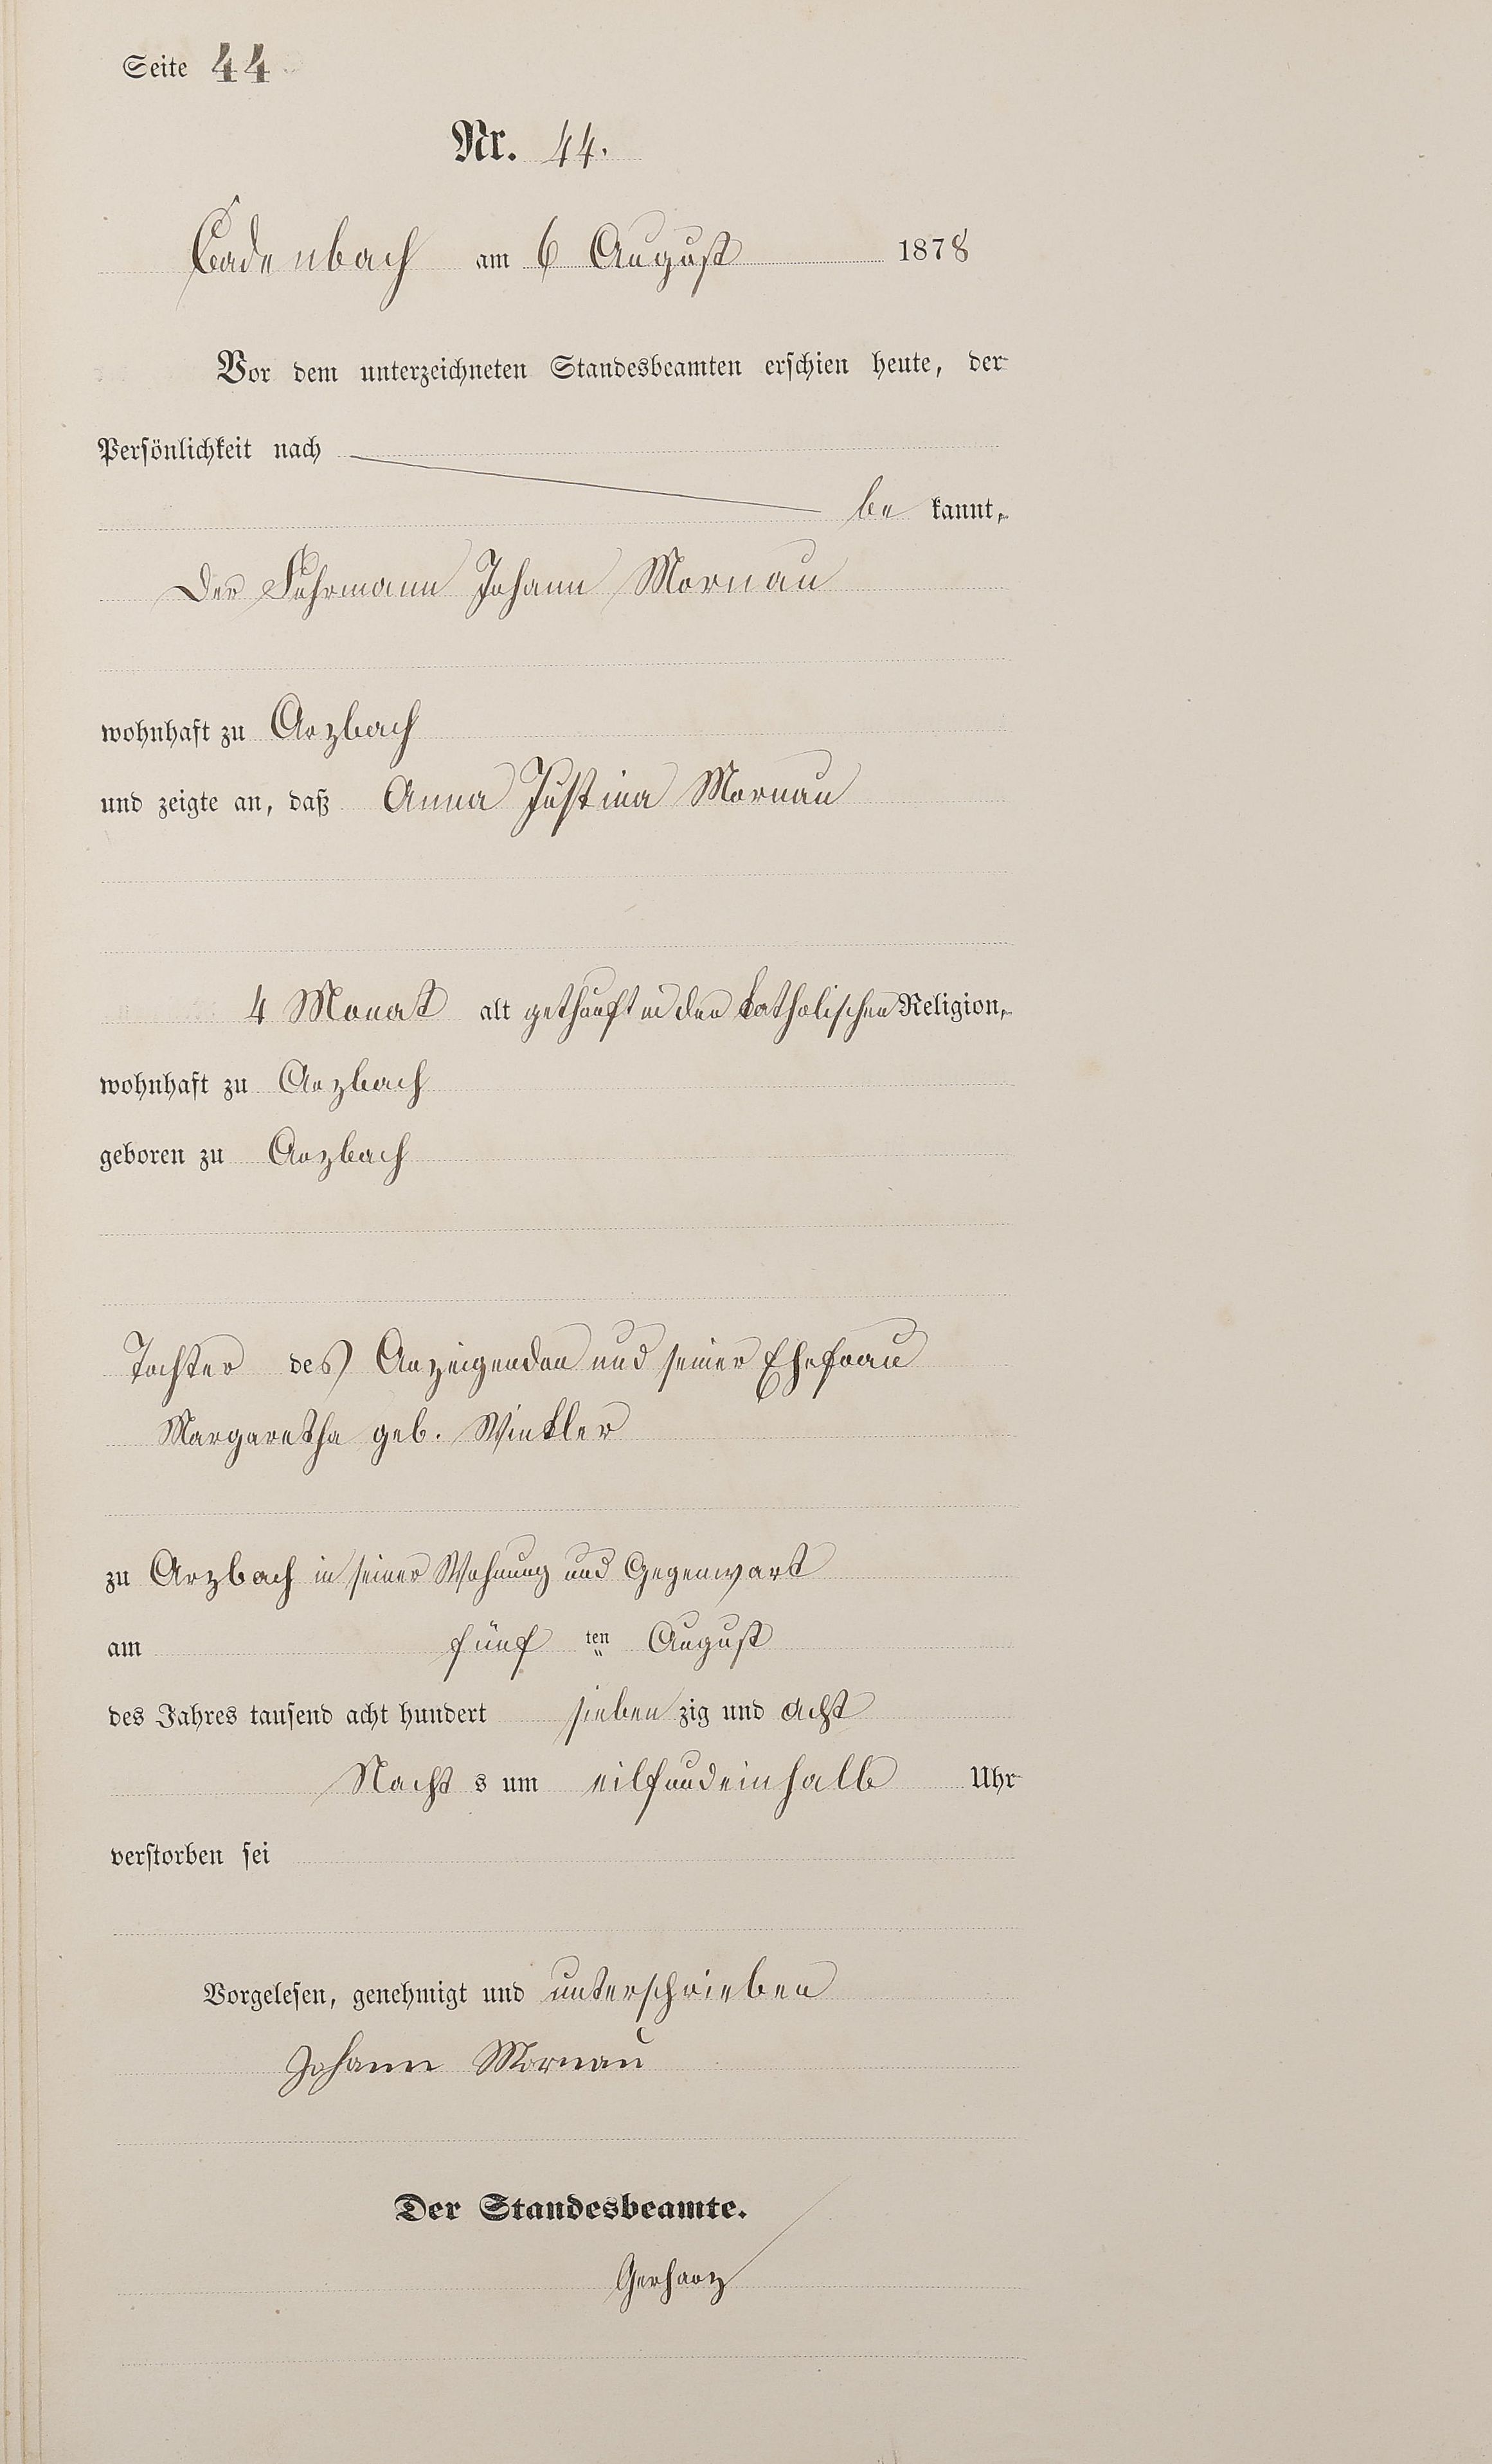 Seite 44
Nr. 44.
Cadenbach am 6 August 1878
Vor dem unterzeichneten Standesbeamten erschien heute, der
Persönlichkeit nach
be kannt,
Der Fuhrmann Johann Mornau
wohnhaft zu Arzbach
und zeigte an, daß Anna Justina Mornau
4 Monat alt gethauft in der katholischen Religion,
wohnhaft zu Arzbach
geboren zu Arzbach
Tochter des Anzeigenden und seiner Ehefrau
Margaretha geb. Winkler
zu Arzbach in seiner Wohnung und Gegenwart
am fünf ten August
des Jahres tausend acht hundert sieben zig und acht
Nacht s um eilfundeinhalb Uhr
verstorben sei
Vorgelesen, genehmigt und unterschrieben
Johann Mornau
Der Standesbeamte.
Gerharz